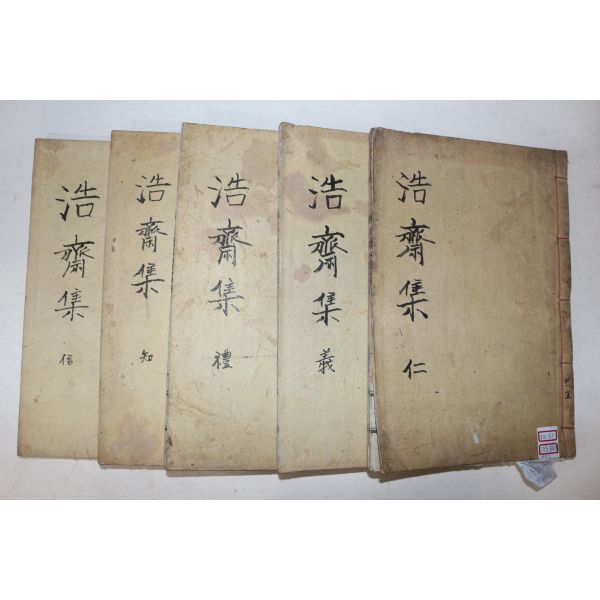 浩齋集 仁
共五
浩齋集 義
浩齋集 禮
浩齋集 知
浩齋集 信